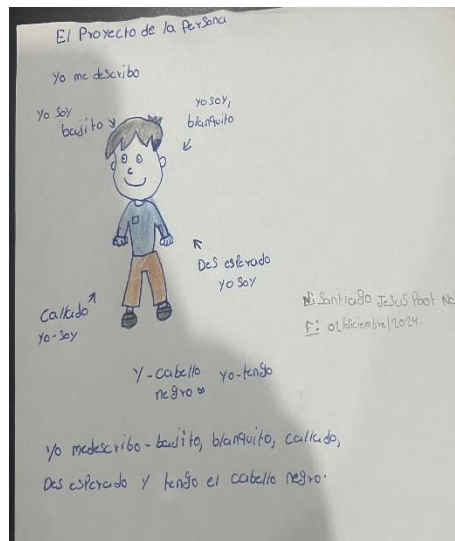 El Proyecto de la Persona
yo me describo
yo soy
bajito
yo soy,
blanquito
Des esperado
yo soy
Callado
yo-soy
N: Santiago Jesus Poot
F: 02/diciembre/2024.
Y-cabello yo-tengo
negro
yo medescribo-bajito, blanquito, callado,
Des esperado y tengo el cabello negro.